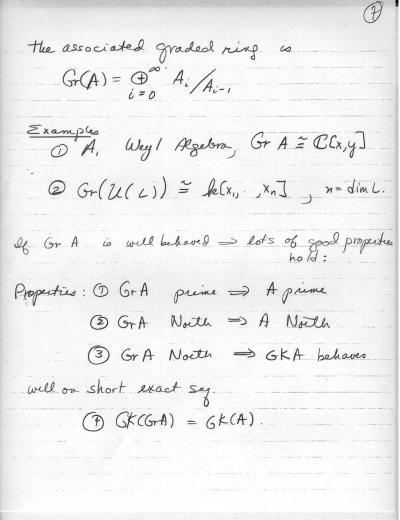 7
the associated graded ring is
Gr(A) = ⊕_{i=0}^{∞} A_i / A_{i-1}
Examples
① A, Weyl Algebra, Gr A ≅ ℂ[x,y]
② Gr(U(L)) ≅ k[x_1, ., x_n], n = dim L.
If Gr A is well behaved ⇒ lots of good properties
hold:
Properties: ① Gr A prime ⇒ A prime
② Gr A Noeth ⇒ A Noeth
③ Gr A Noeth ⇒ GKA behaves
well on short exact seq.
④ GK(GrA) = GK(A).